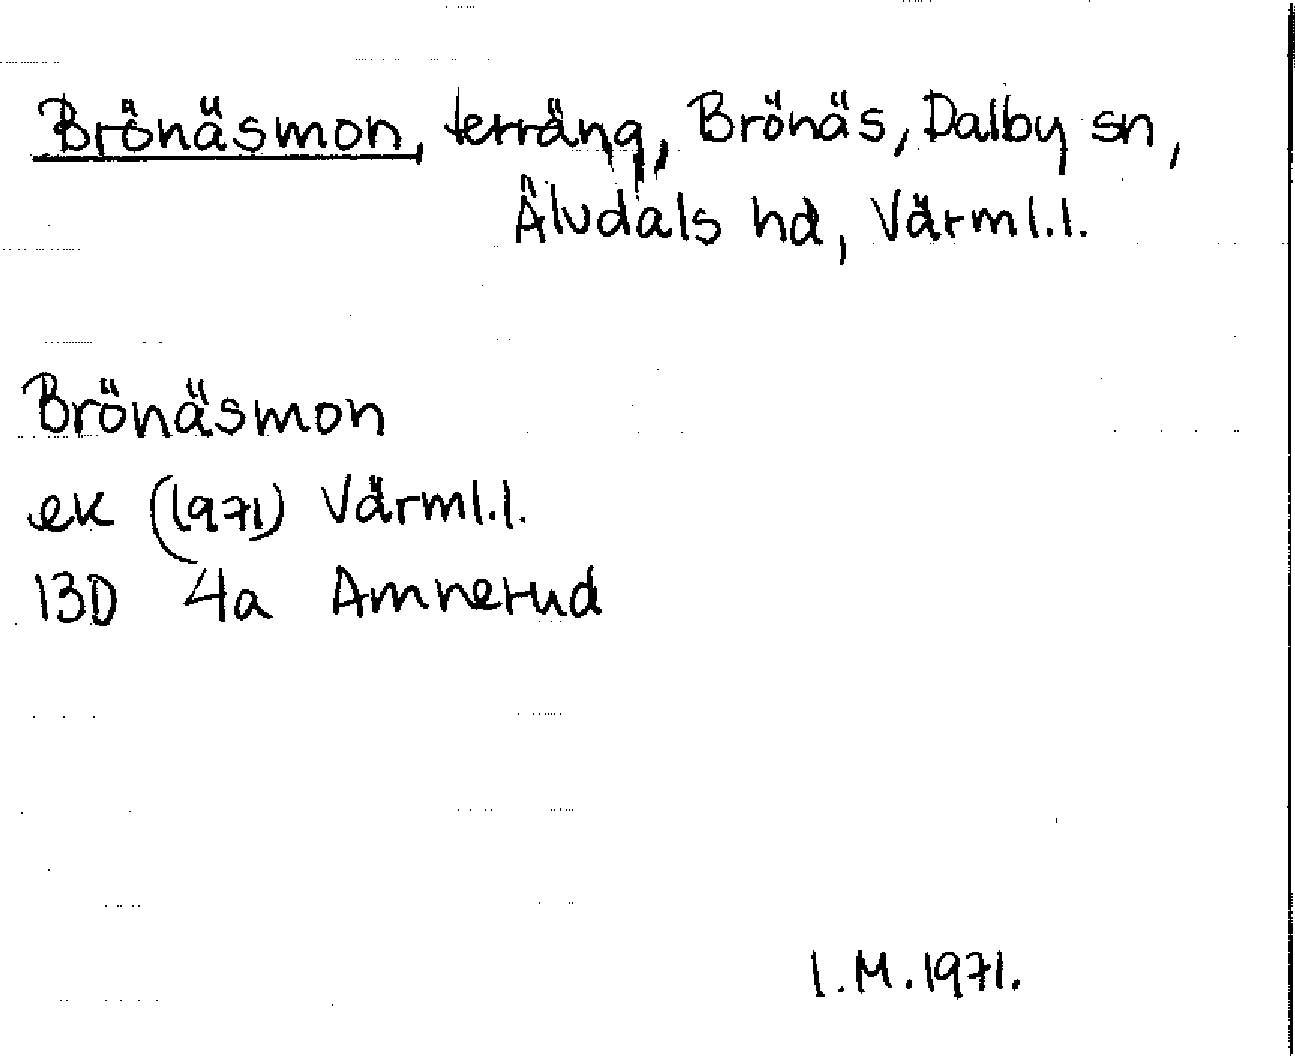 Brönäsmon, terräng, Brönäs, Dalby sn,
Älvdals hd, Värml.l.
Brönäsmon
ek (1971) Värml.l.
13D 4a Amnerud
I.M.1971.